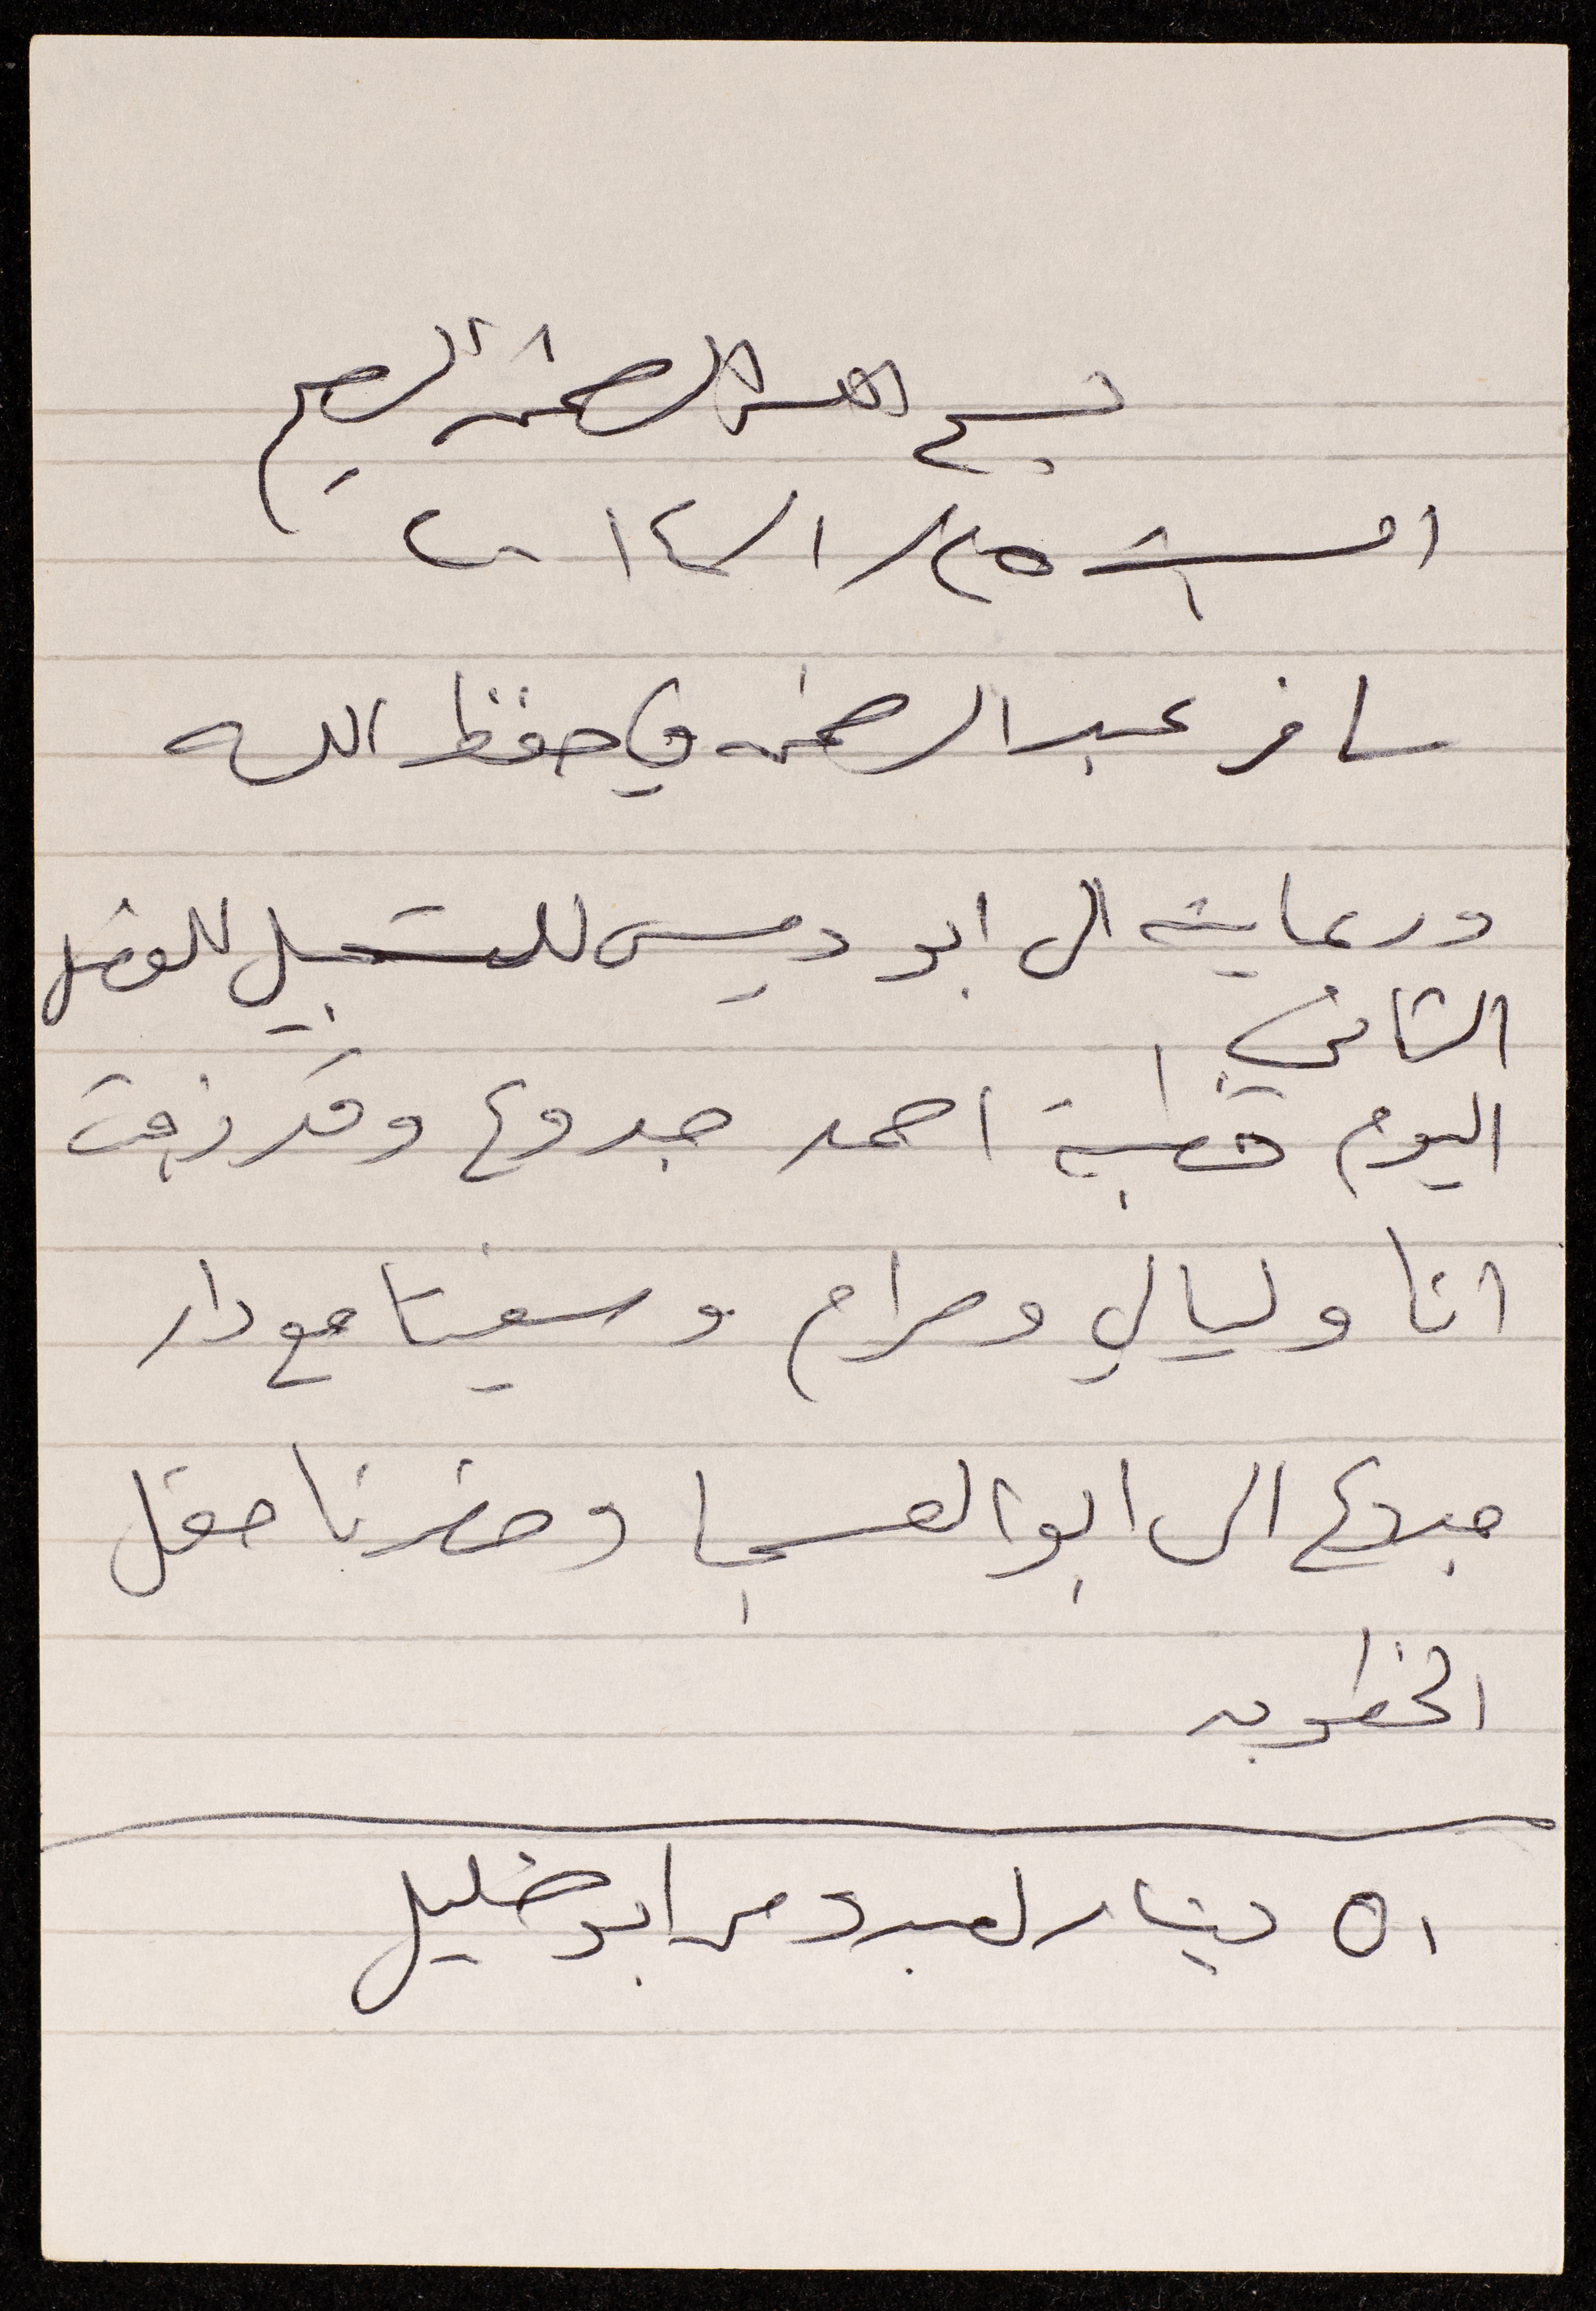 بسم الله الرحمن الرحيم
السبت ٢٥/ ١/ ٢٠١٤
سافر عبد الرحمن في حفظ الله
ورعايته الى ابو ديس للتسجيل للفصل
الثاني
اليوم خطبة احمد جدوع وقد زفت
انا وليالي ومرام وسفيتا مع دار
جدوع الى ابو العسجا وحضرنا حفل
الخطوبه
٥١ دينار لعبد من ابو خليل